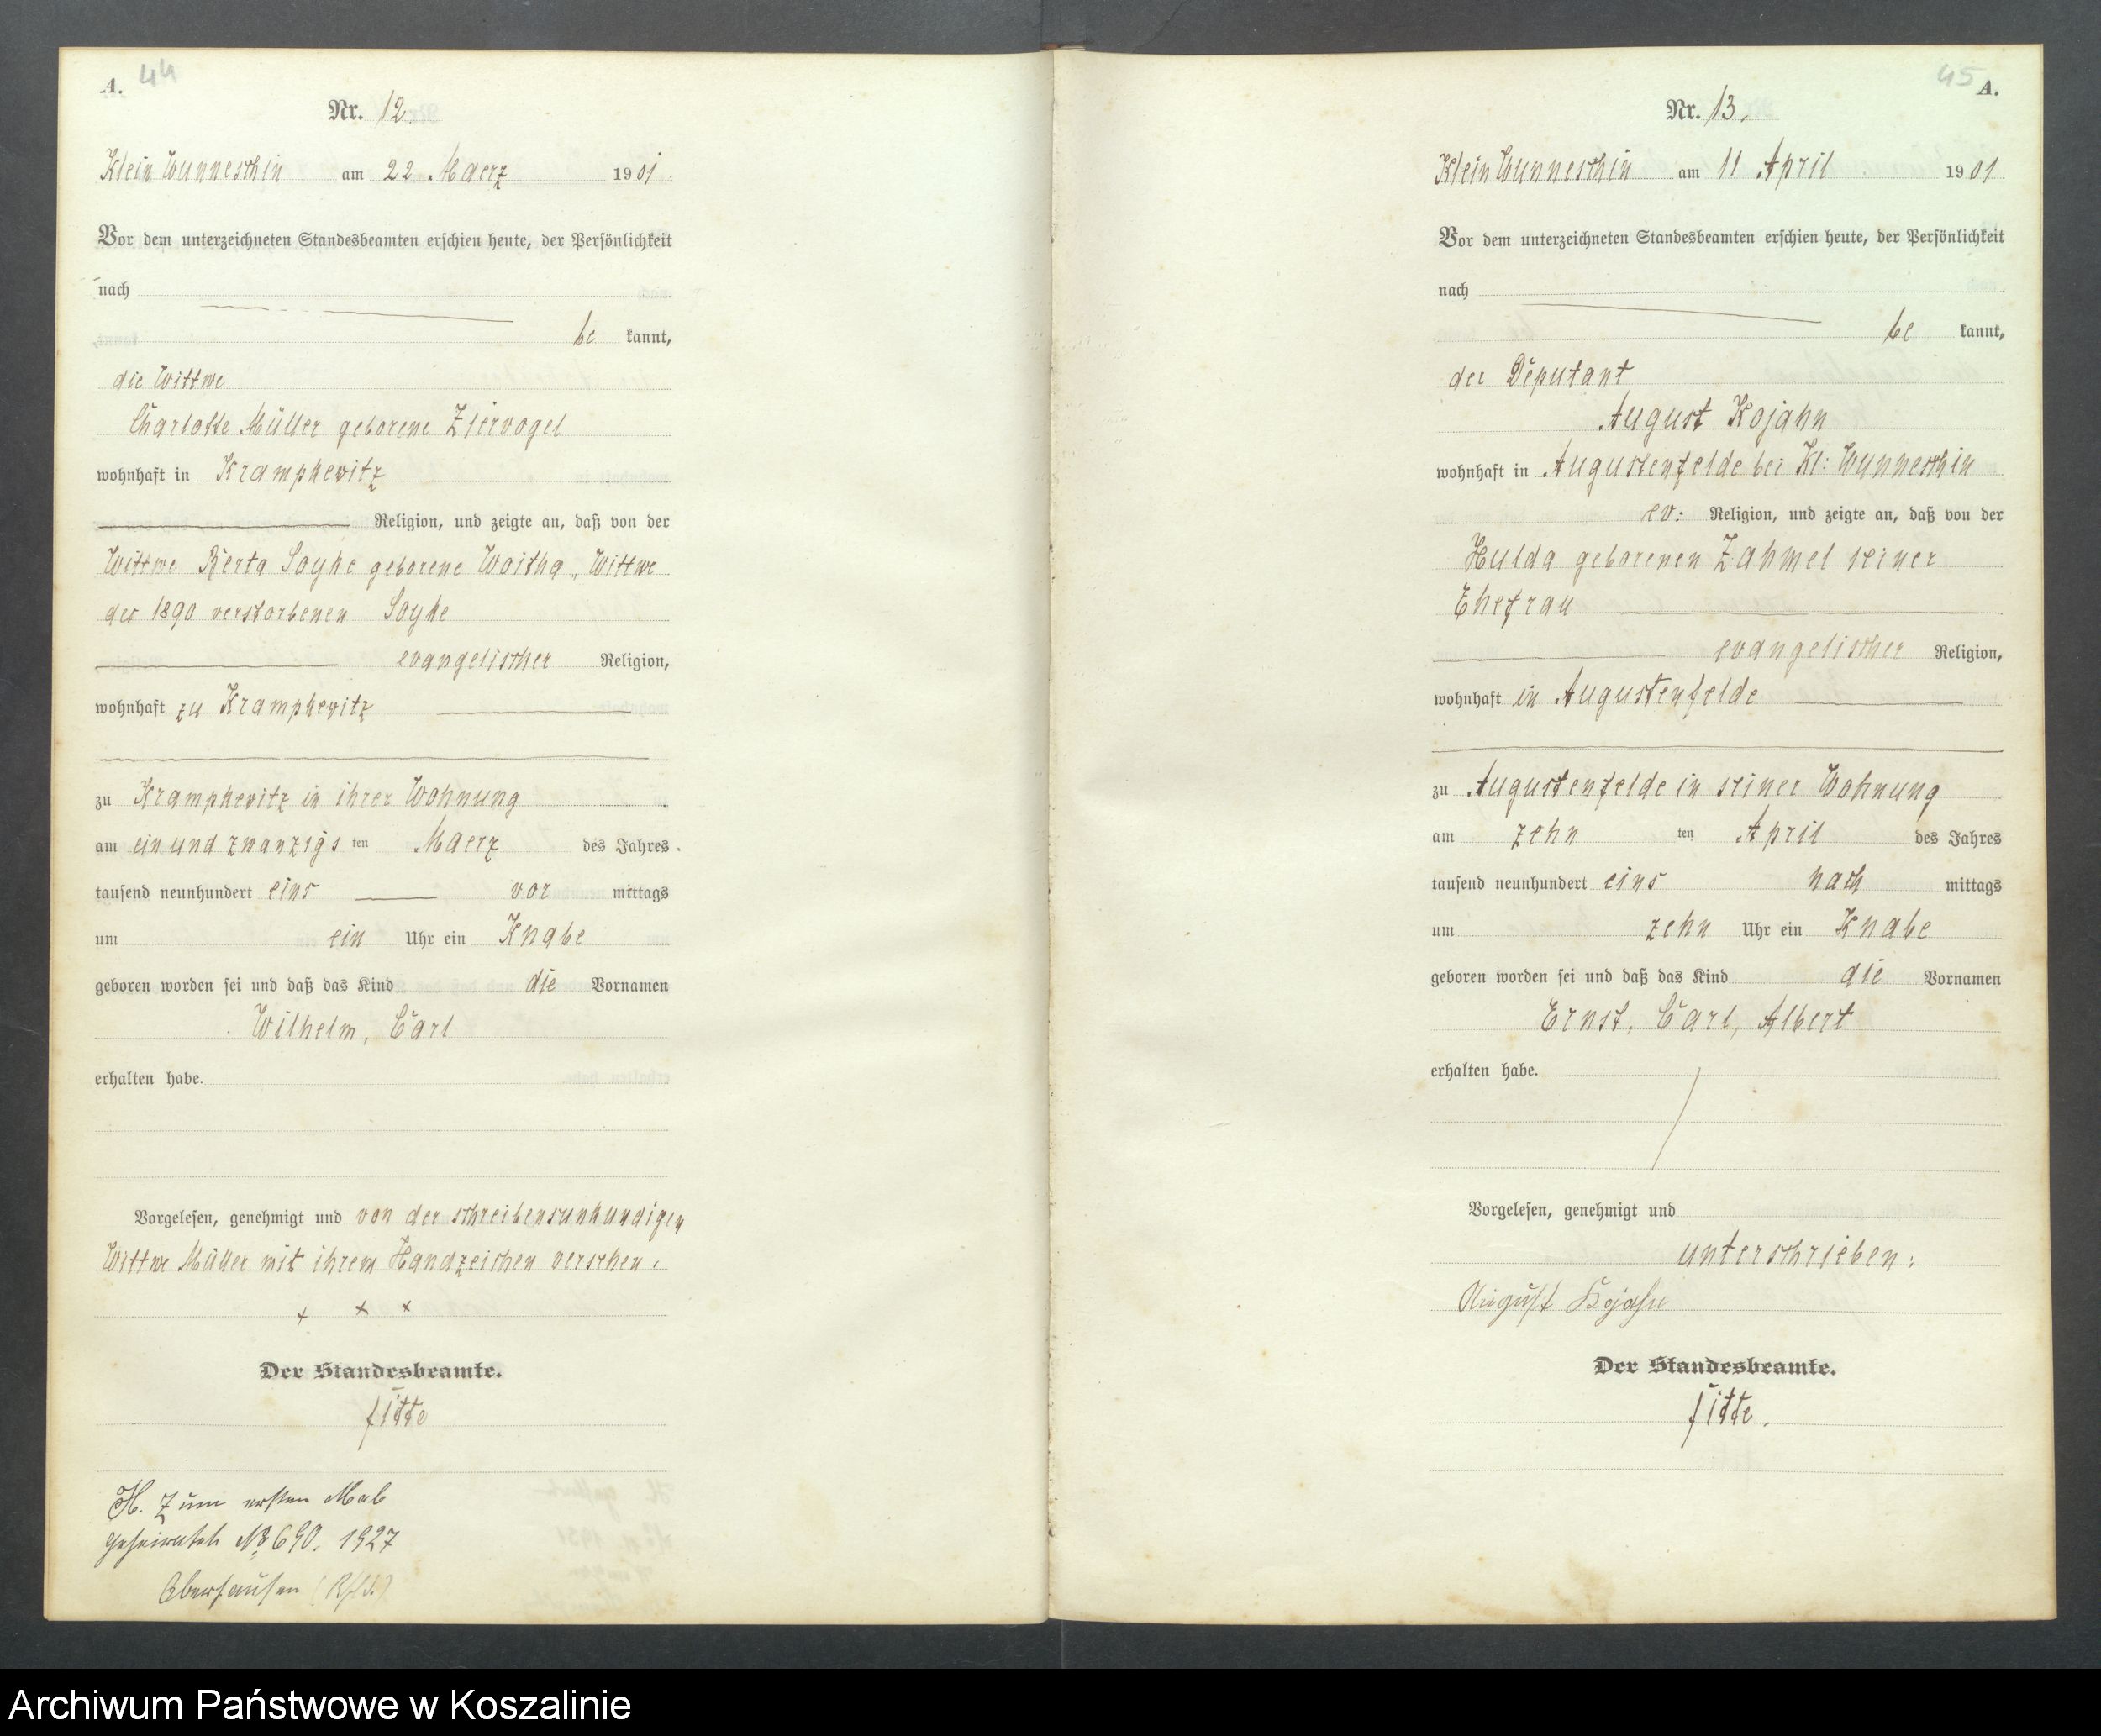 A. 44
Nr. 12.
Klein Wunneschin am 22 Maerz 1901.
Vor dem unterzeichneten Standesbeamten erschien heute, der Persönlichkeit
nach
be kannt,
die Wittwe
Charlotte Müller geborene Ziervogel
wohnhaft in Krampkewitz
Religion, und zeigte an, daß von der
Wittwe Berta Soyke geborene Woitha, Wittwe
des 1890 verstorbenen Soyke
evangelischer Religion,
wohnhaft zu Krampkewitz
zu Krampkewitz in ihrer Wohnung
am ein und zwanzigs ten Maerz des Jahres
tausend neunhundert eins vor mittags
um ein Uhr ein Knabe
geboren worden sei und daß das Kind die Vornamen
Wilhelm, Carl
erhalten habe.
Vorgelesen, genehmigt und von der schreibensunkundigen
Wittwe Müller mit ihrem Handzeichen versehen.
+ + +
Der Standesbeamte.
Fitte
H. Zum ersten Mal
geheiratet No 690. 1927
Oberhausen (Rhld.)
45 A.
Nr. 13.
Klein Wunneschin am 11 April 1901
Vor dem unterzeichneten Standesbeamten erschien heute, der Persönlichkeit
nach
be kannt,
der Deputant
August Kojahn
wohnhaft in Augustenfelde bei Kl: Wunneschin
ev: Religion, und zeigte an, daß von der
Hulda geborenen Zahmel seiner
Ehefrau
evangelischer Religion,
wohnhaft in Augustenfelde
zu Augustenfelde in seiner Wohnung
am zehn ten April des Jahres
tausend neunhundert eins nach mittags
um zehn Uhr ein Knabe
geboren worden sei und daß das Kind die Vornamen
Ernst, Carl, Albert
erhalten habe.
Vorgelesen, genehmigt und
unterschrieben:
August Kojahn
Der Standesbeamte.
Fitte.
Archiwum Państwowe w Koszalinie